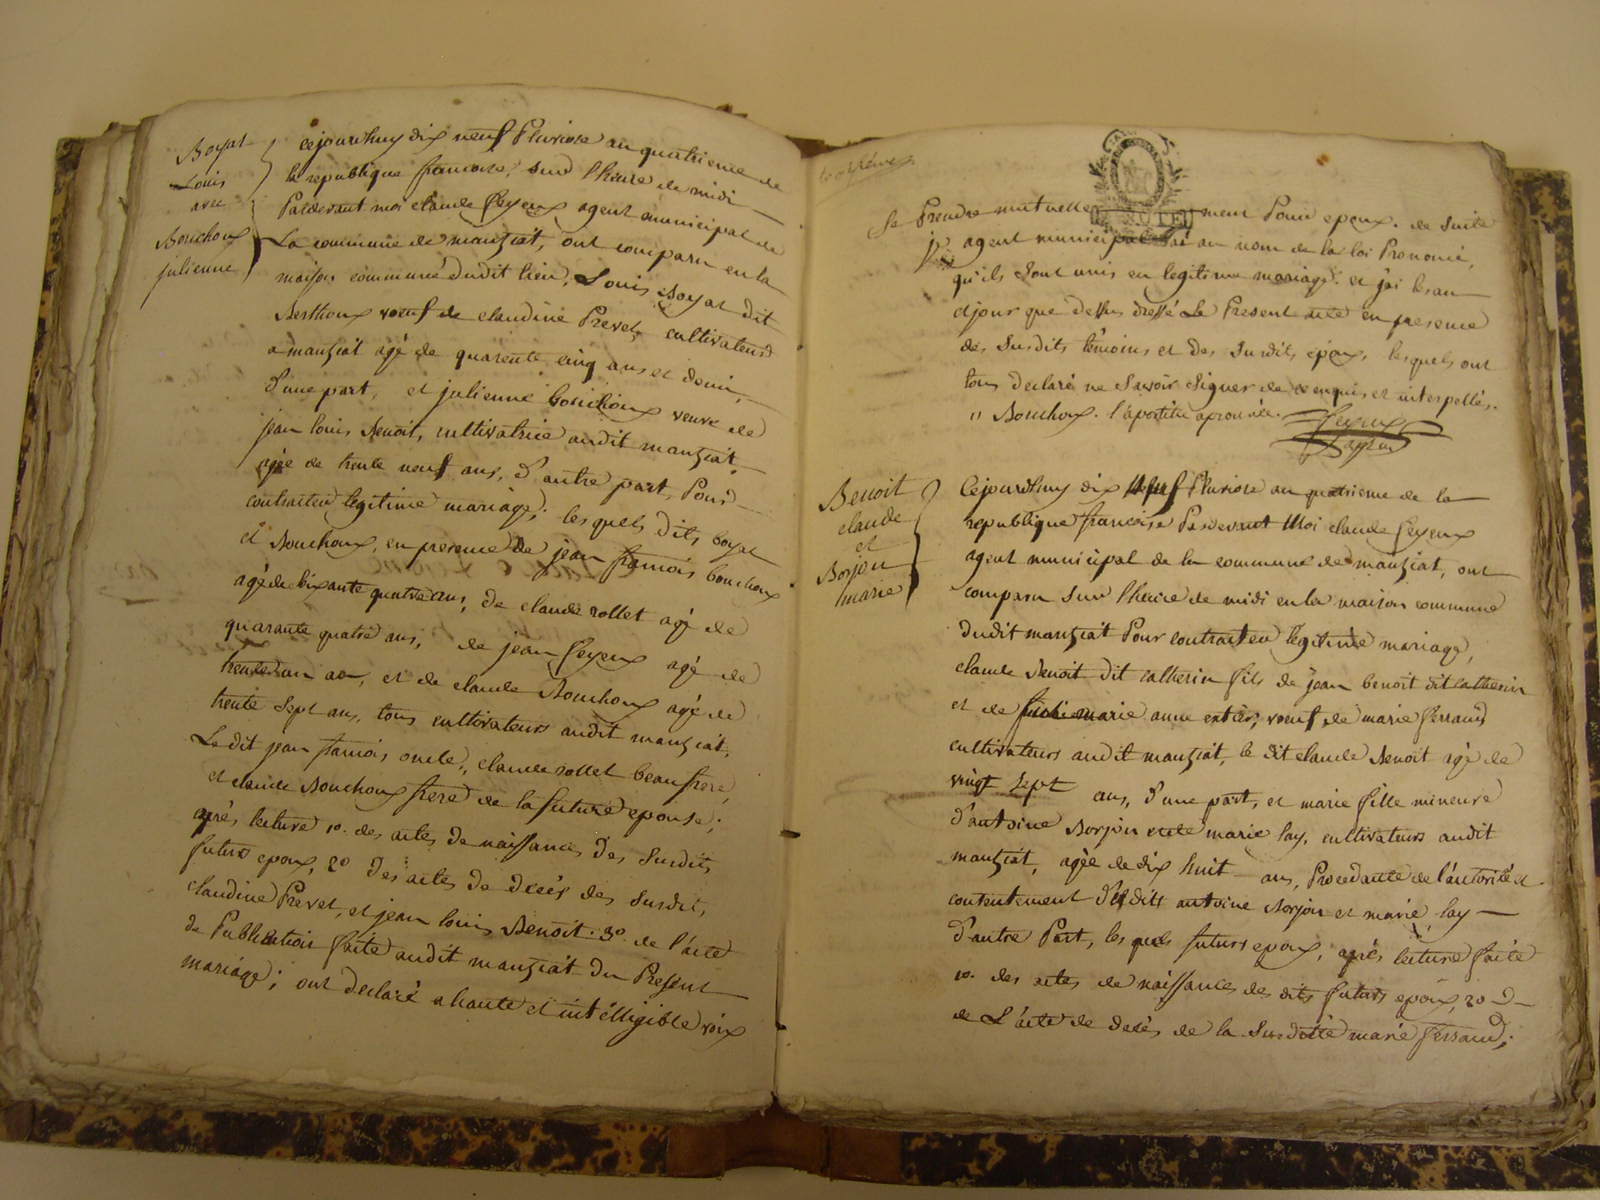 Boyat
Louis
avec
Bouchoux
julienne
Cejourdhuy dix neuf Pluviose an quatrieme de
la republique francoise, sur l'heure de midi
Pardevant moi claude feyeux agent municipal de
La commune de manziat, ont comparu en la
maison commune dudit lieu, Louis Boyat dit
Berthoux voeuf de claudine Prevet, cultivateur
a manziat agé de quarente cinq ans et demi,
d'une part, et julienne bouchoux veuve de
jean louis Benoit, cultivatrice audit manziat
agée de trente neuf ans, d'autre part, Pour
contracter legitime mariage; lesquels dits boyat
et Bouchoux, en presence de jean francois bouchoux
agé de soixante quatre ans, de claude rollet agé de
quarante quatre ans, de jean feyeux agé de
trente un an, et de claude Bouchoux agé de
trente sept ans, tous cultivateurs audit manziat,
Ledit jean francois oncle, claude rollet beaufrere,
et claude Bouchoux frere de la future epouse;
aprés lecture 1º. des actes de naissances des susdits
futurs epoux, 2º des actes de decés des susdits
claudine Prevet, et jean louis Benoit. 3º. de l'acte
de Publication faite audit manziat du Present
mariage; ont declaré a haute et intélligible voix
se Prendre mutuellement Pour epoux. de suite
je agent municipal ai au nom de la loi Prononcé,
qu'ils sont unis en legitime mariage. et j'ai les an
et jour que dessus dressé Le Present acte en presence
des susdits témoins et des susdits epoux, lesquels ont
tous declaré ne savoir signer de ce enquis et interpellés.
" Bouchoux. l'apostille aprouvée.
feyeux
Benoit
claude
et
Borjon
marie
Cejourdhuy dix neuf Pluviose an quatrieme de la
republique francoise Pardevant Moi claude feyeux
agent municipal de la commune de manziat, ont
comparu sur l'heure de midi en la maison commune
dudit manziat Pour contracter legitime mariage,
claude Benoit dit catherin fils de jean benoit dit catherin
et de marie anne voeuf de marie ferraud
cultivateurs audit manziat, le dit claude Benoit agé de
vingt sept ans, d'une part, et marie fille mineure
d'antoine Borjon et de marie lay, cultivateurs audit
manziat, agée de dix huit ans, Procedante de l'autorité et
contentement desdits antoine Borjon et marie lay
d'autre Part, lesquels futurs epoux, aprés lecture faite
1º. des actes de naissances des dits futurs epoux, 2º
de L'acte de decés de la susditte marie ferraud;